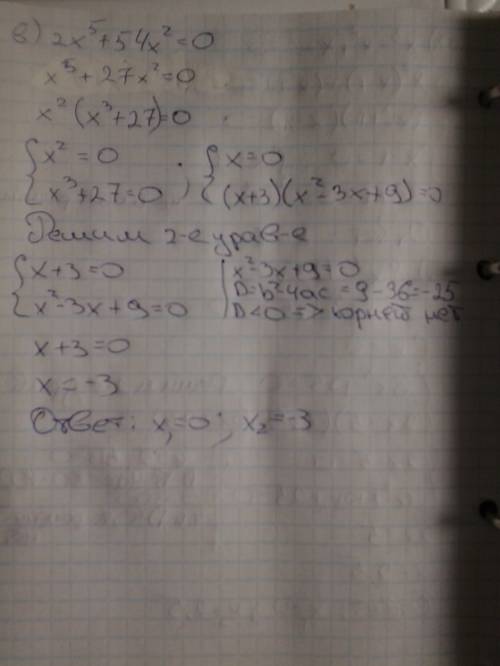 в) 2x⁵+54x²=0
x⁵+27x²=0
x²(x³+27)=0
{ x²=0 ; { x=0
{ x³+27=0 { (x+3)(x²-3x+9)=0
Решим 2-е урав-е
{ x+3=0 | x²-3x+9=0
{ x²-3x+9=0 | D=b²-4ac=9-36=-25
D<0 => корней нет
x+3=0
x=-3
Ответ: x₁=0; x₂=-3